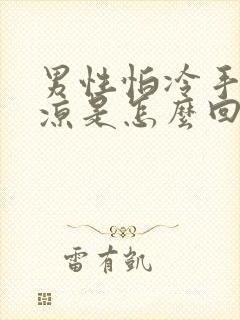 男性怕冷手
凉是怎麽回
雷有凯